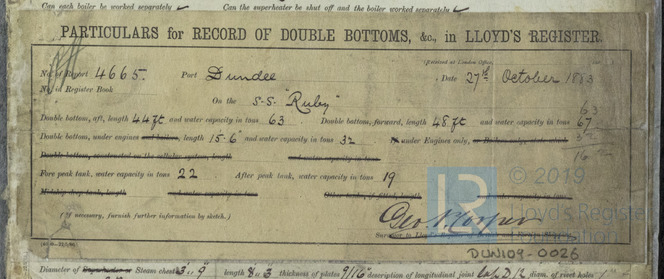 Can each boiler be worked separately ✓ Can the superheater be shut off and the boiler worked separately ✓
PARTICULARS for RECORD OF DOUBLE BOTTOMS, &c., in LLOYD'S REGISTER.
(Received at London Office,
No. of Report 4665. Port Dundee Date 27th October 1883
No. in Register Book
On the S.S. "Ruby"
63
Double bottom, aft, length 44ft and water capacity in tons 63. Double bottom, forward, length 48ft and water capacity in tons 67
Double bottom, under engines and boilers, length 15-6" and water capacity in tons 32 If under Engines only, or Boilers only, state which
32
Double bottom, constructed on the cellular system, length and water capacity in tons
Fore peak tank, water capacity in tons 22 After peak tank, water capacity in tons 19
Midship deep tank, length and water capacity in tons
(If necessary, furnish further information by sketch.)
Surveyor to Lloyd's Register
LR © 2019
Lloyd's Register
Foundation
DUN109-0026
Diameter of Superheater or Steam chest 3' 9" length 8' 3" thickness of plates 9/16" description of longitudinal joint Lap D R diam. of rivet holes